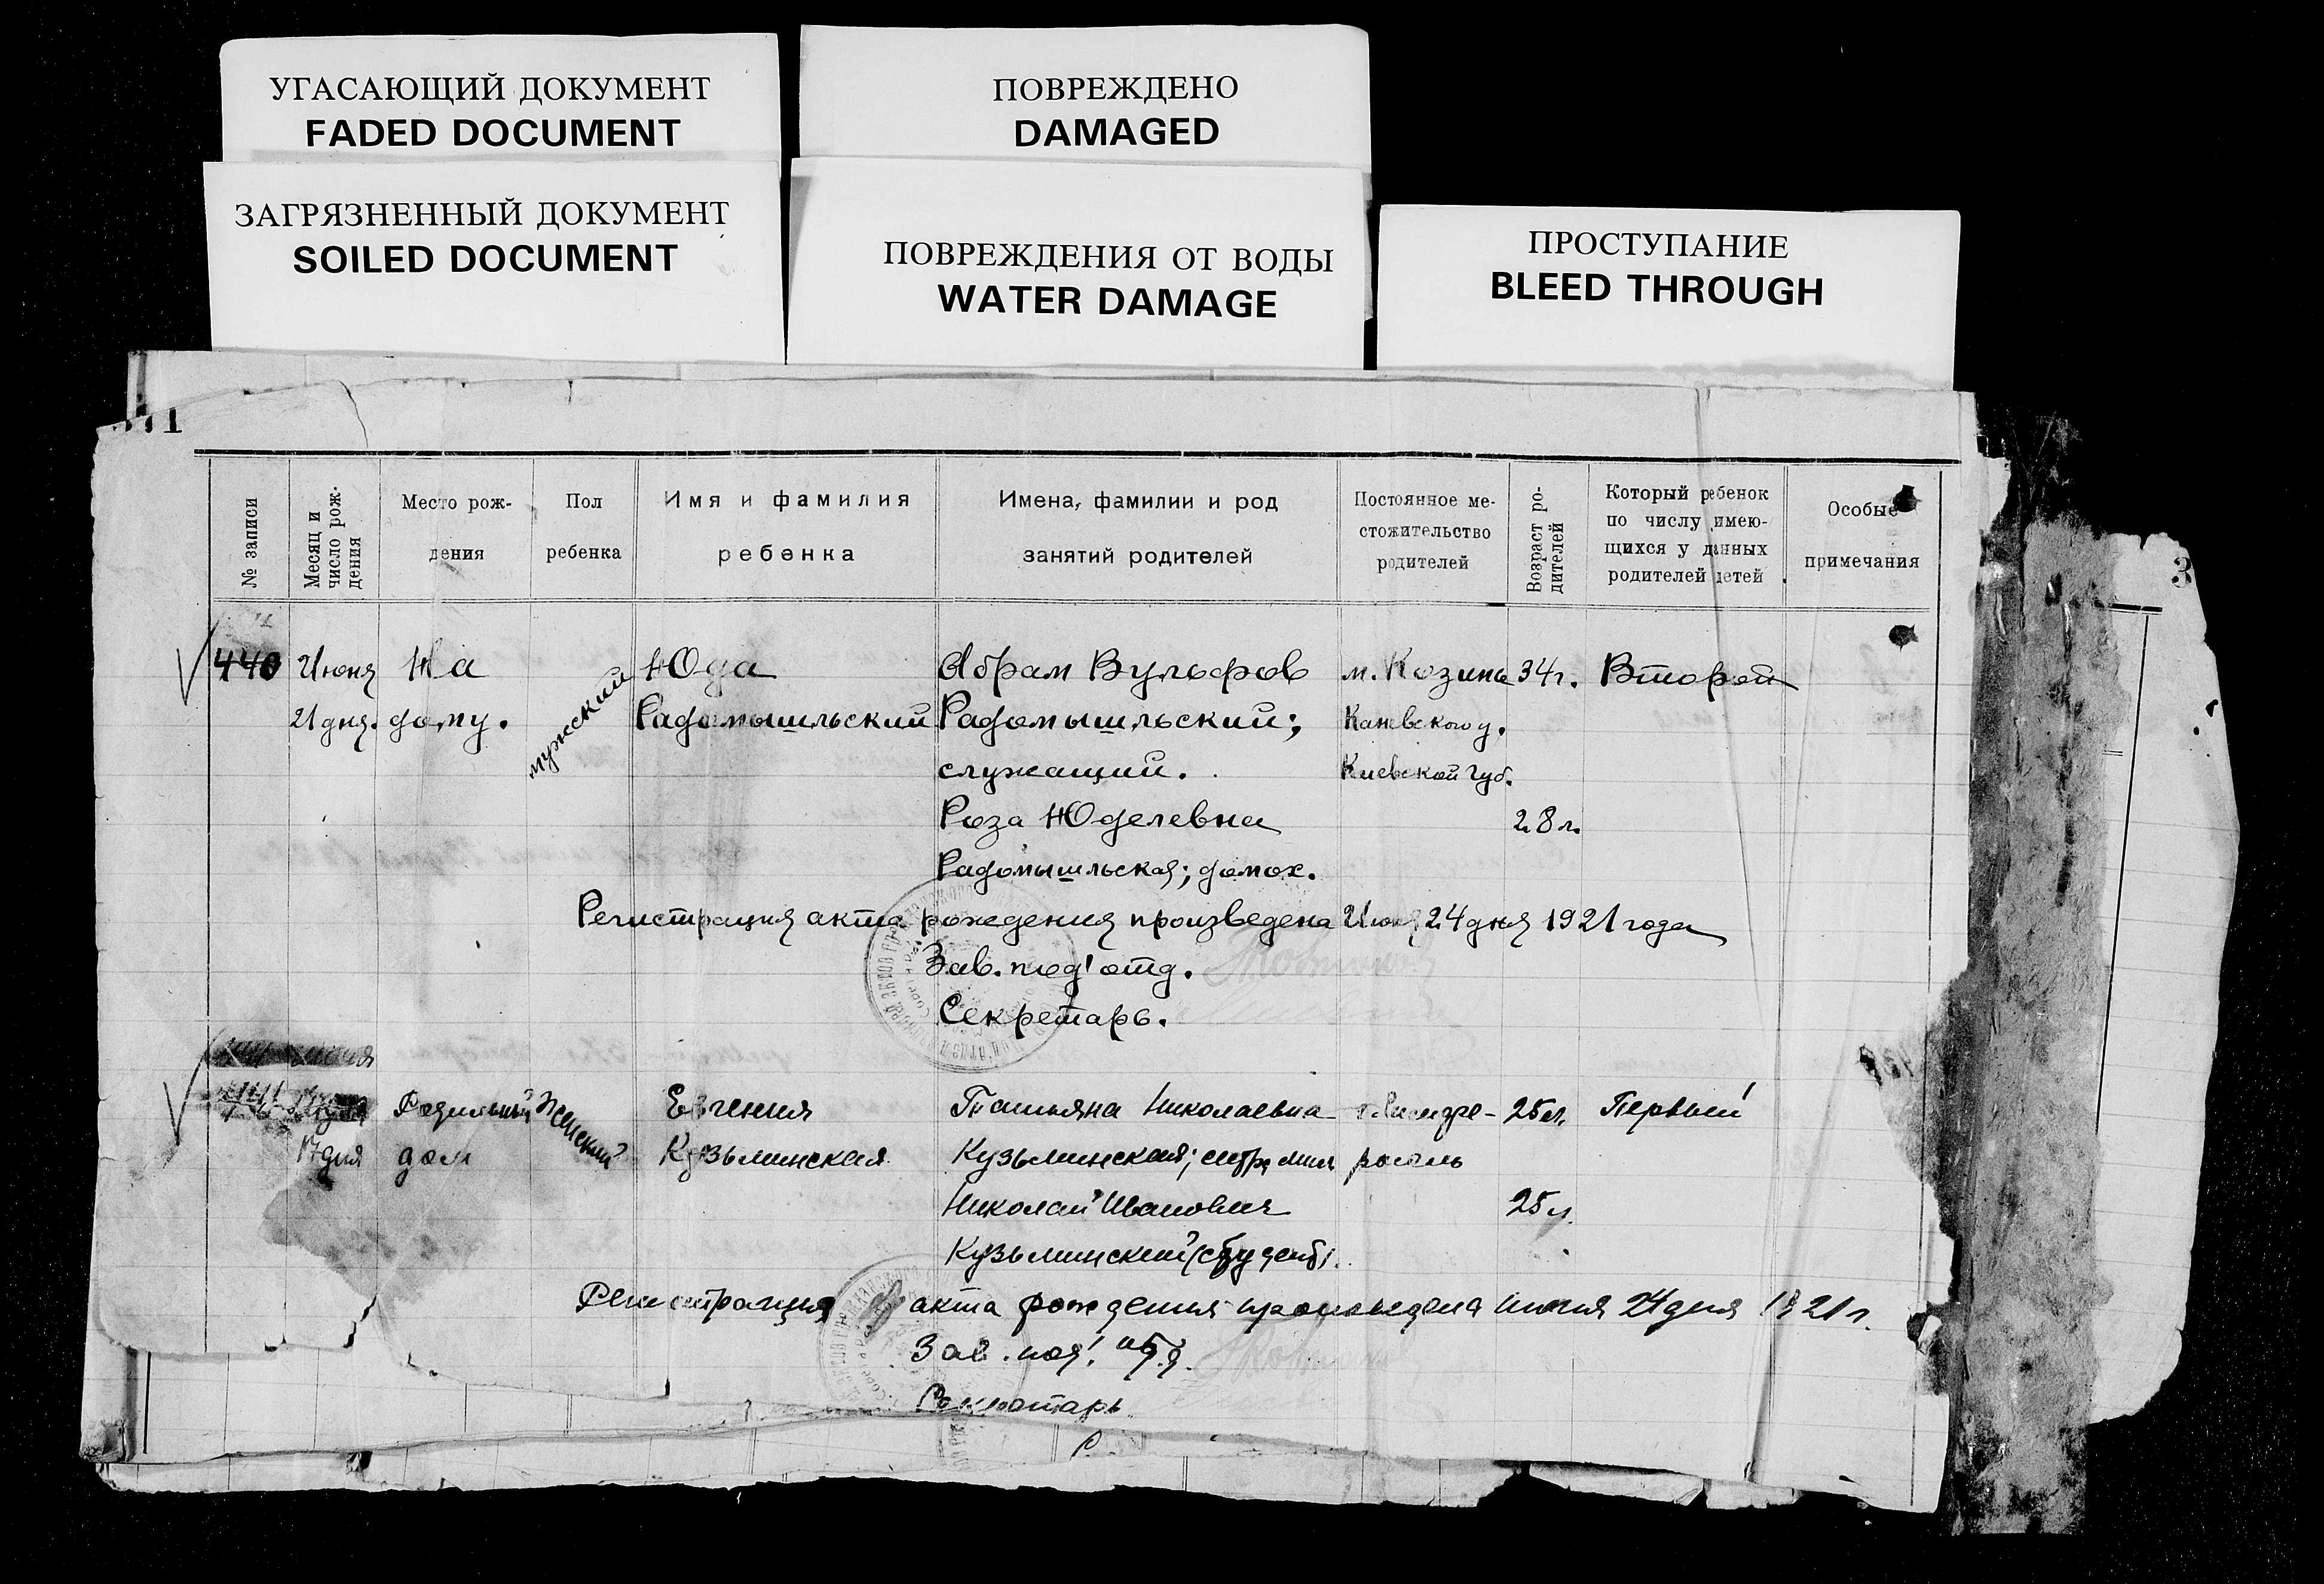 УГАСАЮЩИЙ ДОКУМЕНТ
FADED DOCUMENT
ЗАГРЯЗНЕННЫЙ ДОКУМЕНТ
SOILED DOCUMENT
ПОВРЕЖДЕНО
DAMAGED
ПОВРЕЖДЕНИЯ ОТ ВОДЫ
WATER DAMAGE
ПРОСТУПАНИЕ
BLEED THROUGH
№ записи
Месяц и
число рож-
дения
Место рож-
дения
Пол
ребенка
Имя и фамилия
ребенка
Имена, фамилии и род
занятий родителей
Постоянное ме-
стожительство
родителей
Возраст ро-
дителей
Который ребенок
по числу имею-
щихся у данных
родителей детей
Особые
примечания
3
440 Июня На мужский Юда Абрам Вульфов м. Козина 34г. Второй
21 дня. дому. Радомышльский Радомышльский; Каневского у.
служащий. Киевской губ.
Роза Юделевна 28 л.
Радомышльская; домох.
Регистрация акта рождения произведена Июня 24 дня 1921 года
Зав. под'отд.
Секретарь.
441 Родильный Женский Евгения Татьяна Николаевна 25 л. Первый
17 дня дом Кузьминская Кузьминская;
Николай Иванович 25 л.
Кузьминский студент.
Регистрация акта рождения произведена июня 24 дня 1921 г.
Зав. под'отд.
Секретарь